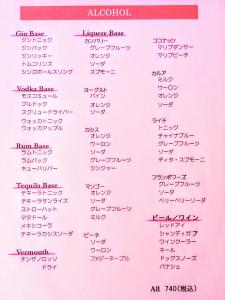 ALCOHOL
Gin Base
ジントニック
ジンバック
ジンリッキー
トムコリンズ
シンガポールスリング
Vodka Base
モスコミュール
ブルドッグ
スクリュードライバー
ウォッカトニック
ウォッカアップル
Rum Base
ラムトニック
ラムバック
キューバリバー
Tequila Base
テキーラトニック
テキーラサンライズ
ストローハット
マタドール
メキシコーラ
テキーラカシスソーダ
Vermouth
チンザノロッソ
ドライ
Liquere Base
カンパリー
グレープフルーツ
オレンジ
ソーダ
スプモーニ
ヨーグルト
パイン
オレンジ
ソーダ
カシス
オレンジ
ウーロン
グレープフルーツ
ソーダ
ジンジャー
マンゴー
オレンジ
ソーダ
グレープフルーツ
ミルク
ピーチ
ソーダ
ウーロン
ファジーネーブル
ココナッツ
マリブダンサー
マリブピーチ
カルア
ミルク
ウーロン
オレンジ
ソーダ
ライチ
トニック
チャイナブルー
グレープフルーツ
ソーダ
ディタ・スプモーニ
フランボワーズ
グレープフルーツ
ソーダ
ベリーベリーソーダ
ビール／ワイン
レッドアイ
シャンディガフ
ワインクーラー
キール
ドッグスノーズ
パナシェ
All 740(税込)